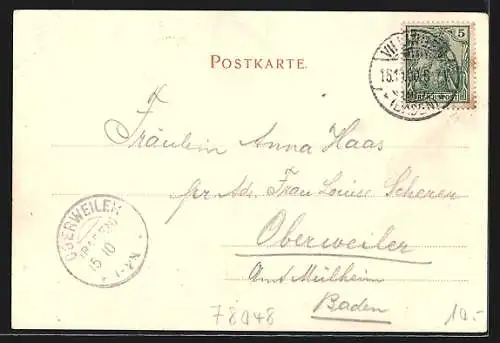 POSTKARTE.
5
(BADEN)
Fräulein Anna Haas
pr Adr. Frau Louise Scherer
Oberweiler
Amt Müllheim
Baden
OBERWEILER
(BADEN)
15 10
78048
10.-